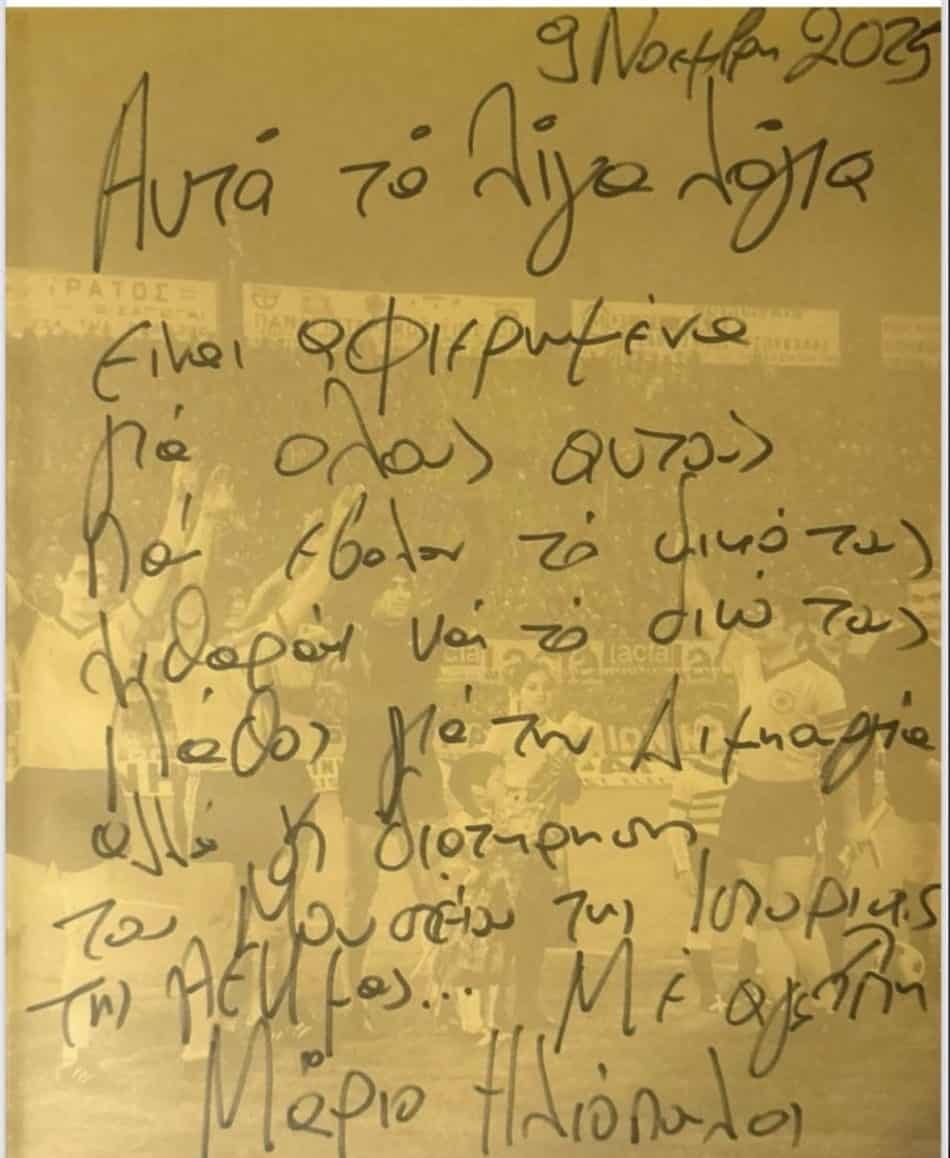 9 Νοεμβρη 2025
Αυτά τά λίγα λόγια
είναι αφιερωμένα
γιά ολους αυτους
πού εβαλαν τό δικό τους
λιθαράκι καί τό δικό τους
πάθος γιά την Δημιουργία
αλλά κ διατηρηση
του Μουσείου της Ιστορίας
της ΑΕΚ μας... Μέ αγάπη
Μάριο Ηλιόπουλοι
ΡΑΤΟΣ
lacta
lacta